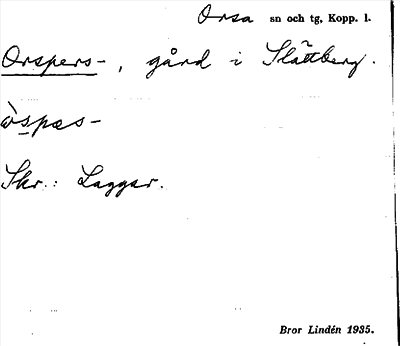 Orsa sn och tg, Kopp. l.
Orspers-, gård i Slättberg.
òspæs-
Skr.: Laggar.
Bror Lindén 1935.